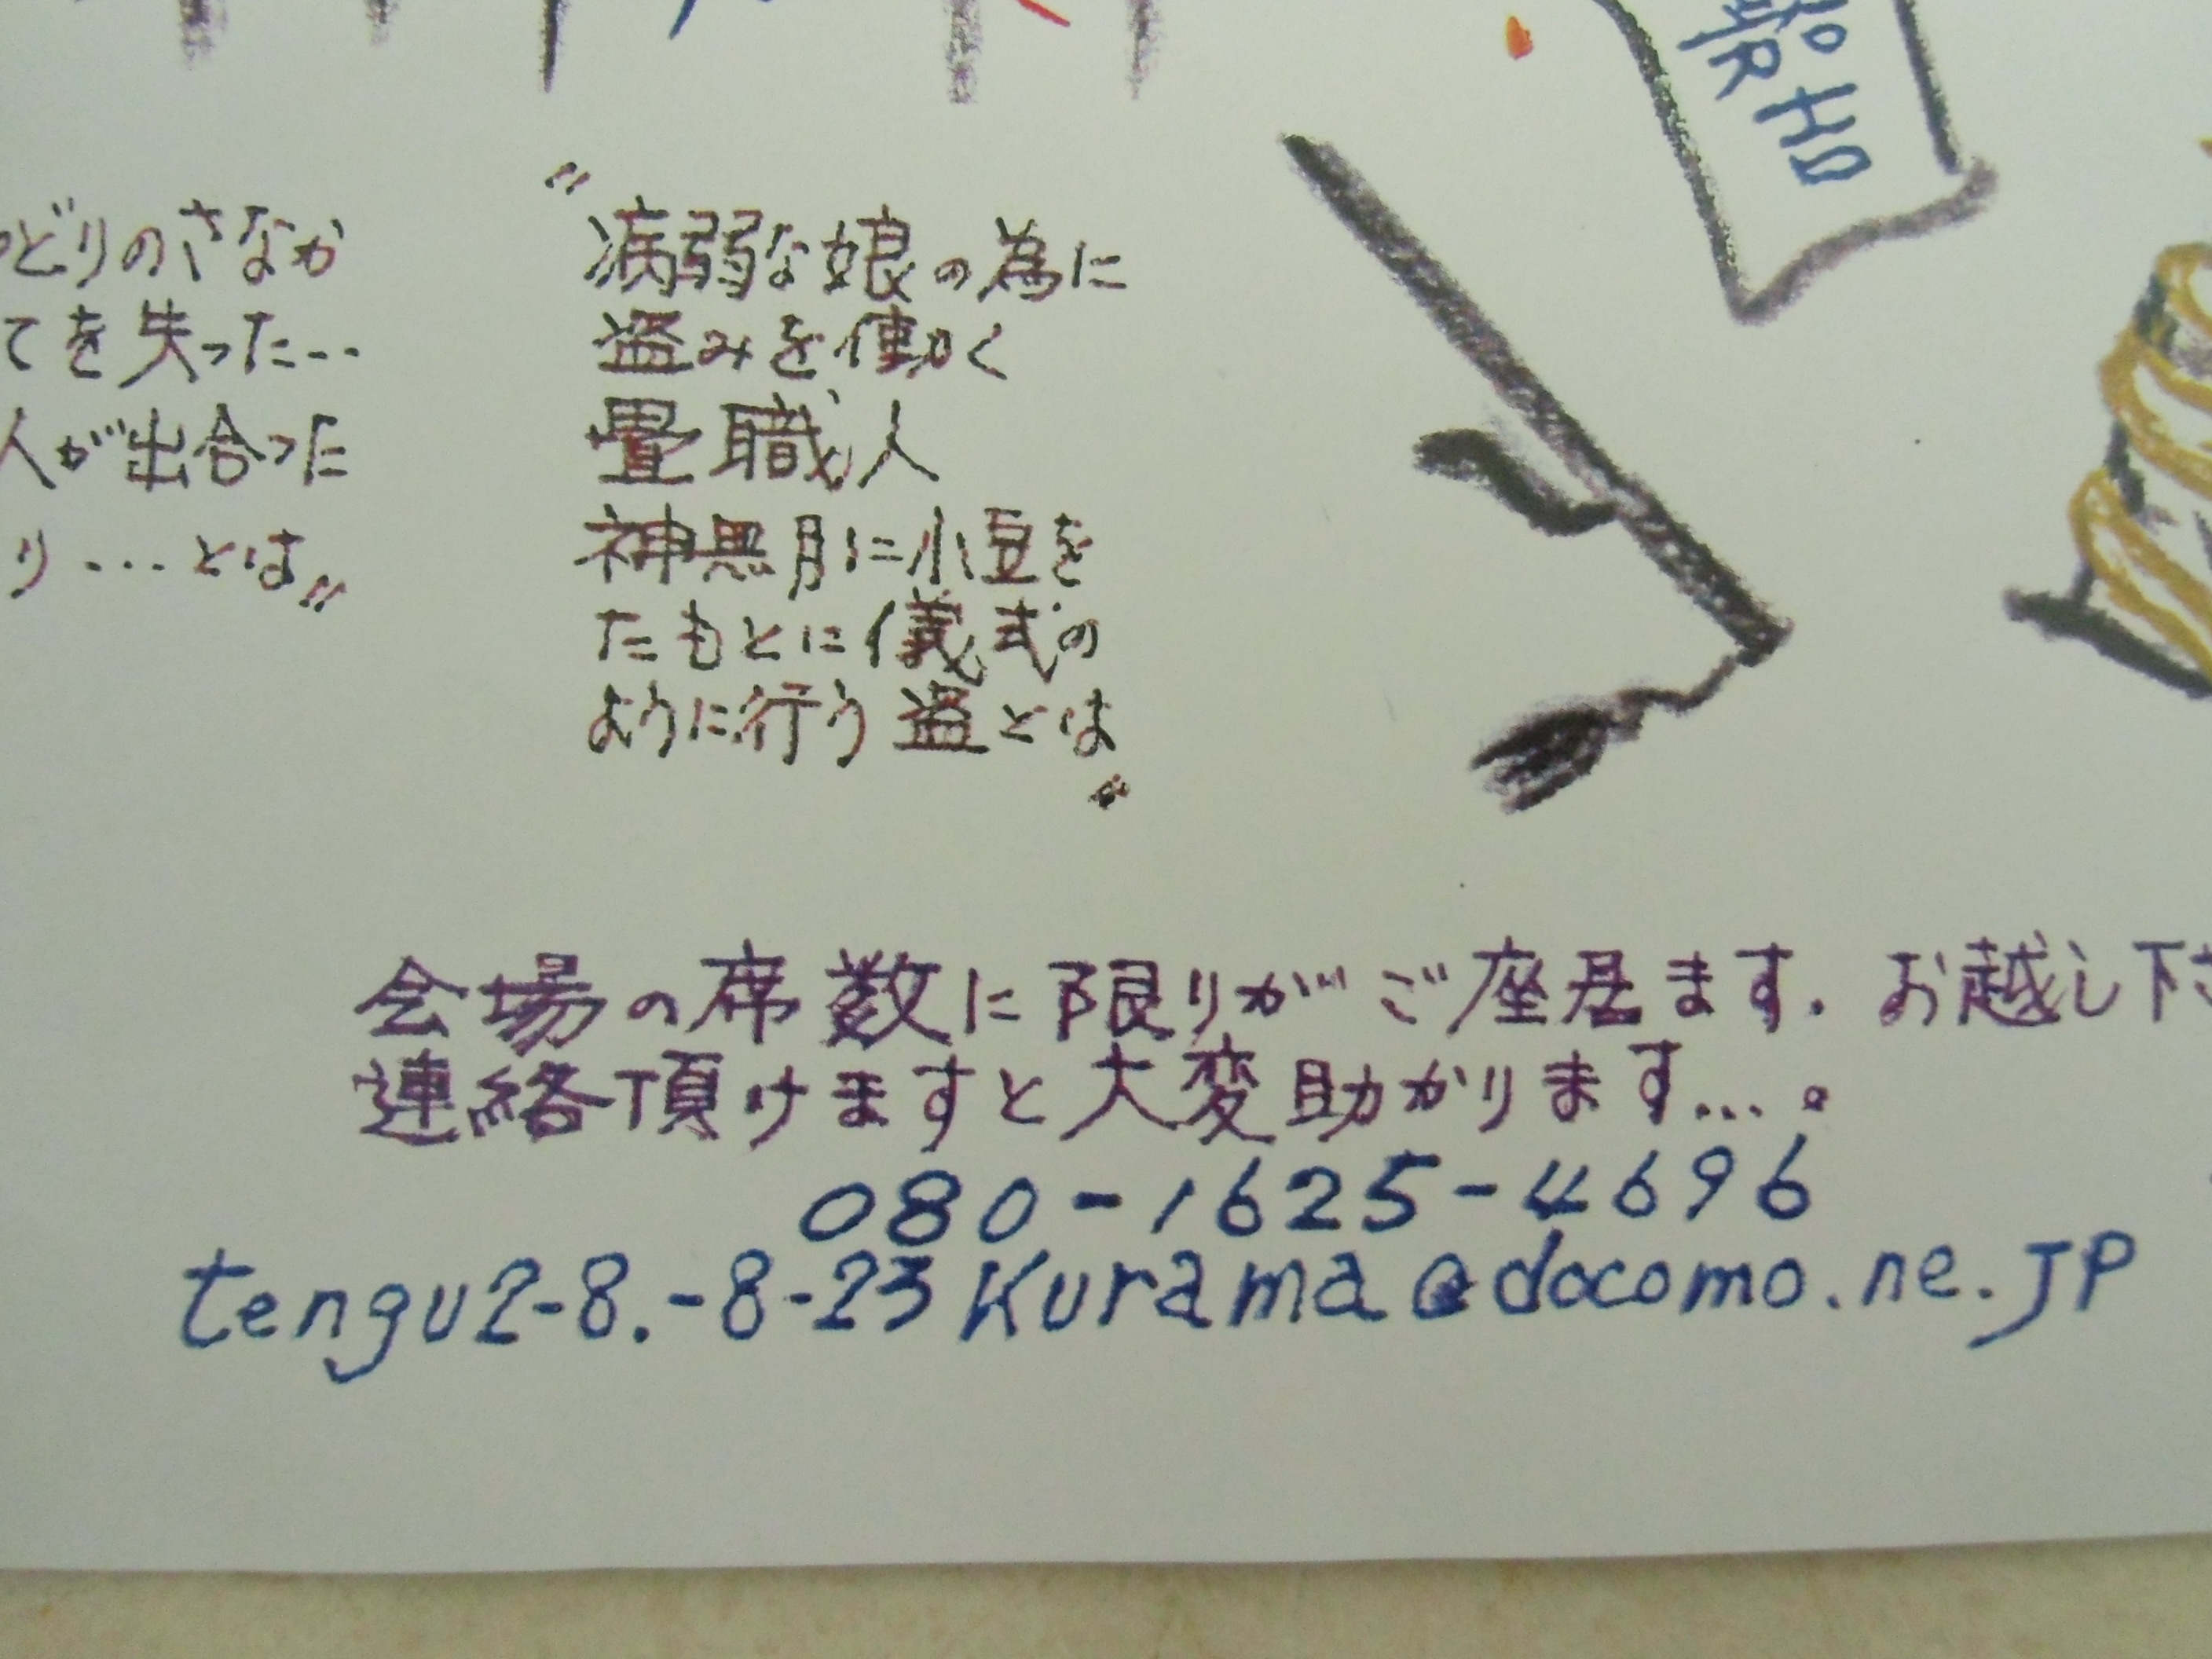 どりのさなか
てを失った…
人が出合った
り…とは〃
〃
病弱な娘の為に
盗みを働く
畳職人
神無月に小豆を
たもとに儀式の
ように行う盗とは
〃
会場の席数に限りがご座居ます. お越し下さ
連絡頂けますと大変助かります…。
080-1625-4696
tengu2-8.-8-23Kurama@docomo.ne.JP